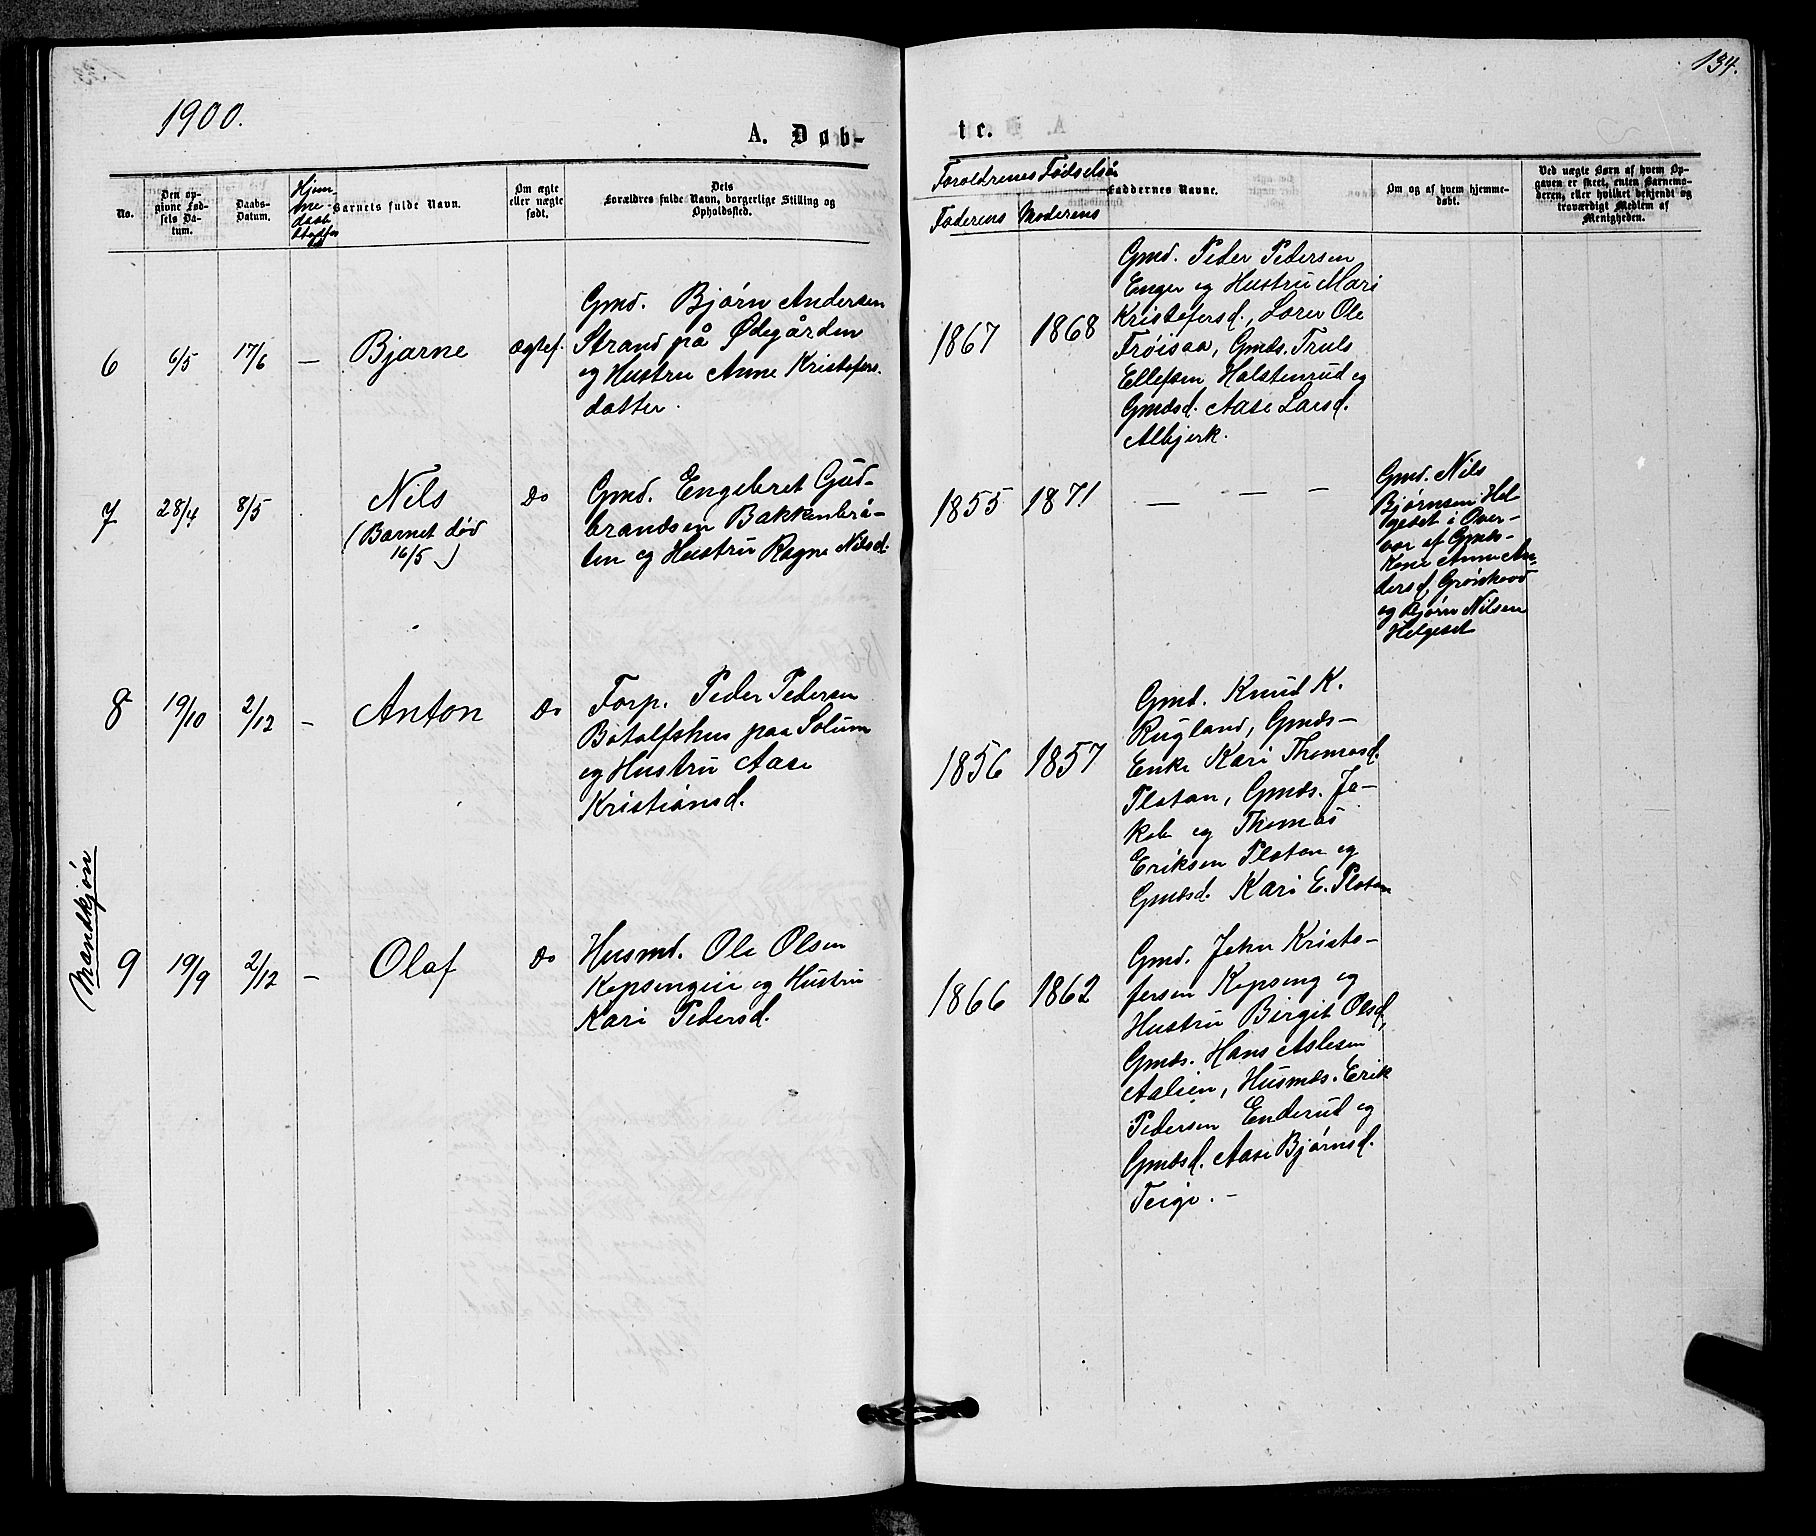 134.
1900.
A. Døb-
te.
No.
Den op-
givne Fød-
sels Da-
tum.
Daabs-
Datum.
Hjem-
me-
daab
Barnets fulde Navn.
Om ægte
eller uægte
født.
Dets
Forældres fulde Navn, borgerlige Stilling og
Opholdssted.
Foræeldrenes Fødselsår
Faderens
Moderens
Faddernes Navne.
Om og af hvem hjemme-
døbt.
Ved uægte Børn af hvem Op-
gaven er skeet, enten Barnemo-
deren, eller hvilket bekjendt og
troværdigt Medlem af
Menigheden.
6
6/5
17/6
—
Bjarne
ægtef.
Gmd. Bjørn Andersen
Strand på Ødegården
og Hustru Anne Kristofers-
datter.
1867
1868
Gmd. Peder Pedersen
Enger og Hustru Mari
Kristofersd., Lærer Ole
Frøisaa, Gmds. Truls
Ellefsen Holstenrud og
Gmdsd. Aase Larsd.
Albjerk.
7
28/4
8/5
Nils
(Barnet død
16/5)
Do
Gmd. Engebret Gud-
brandsen Bakkenbrå-
ten og Hustru Ragne Nilsd.
1855
1871
— — —
Gmd. Nils
Bjørnsen Hel-
geset i Over-
vær af Gmds-
Kone Anne An-
dersd. Grønhovd
og Bjørn Nilsen
Helgeset
8
19/10
2/12
—
Anton
Do
Forp. Peder Pedersen
Botolfshus paa Solum
og Hustru Aase
Kristiansd.
1856
1857
Gmd. Knud K.
Rugland, Gmds-
Enke Kari Thomasd.
Platon, Gmds. Ja-
kob og Thomas
Eriksen Platon og
Gmdsd. Kari E. Platon
Mandkjøn
9
19/9
2/12
—
Olaf
Do
Husmd. Ole Olsen
Kopsengeie og Hustru
Kari Pedersd.
1866
1862
Gmd. John Kristo-
fersen Kopseng og
Hustru Birgit Olsd.,
Gmds. Hans Aslesen
Aalien, Husmds. Erik
Pedersen Enderud og
Gmdsd. Aase Bjørnsd.
Teige. —